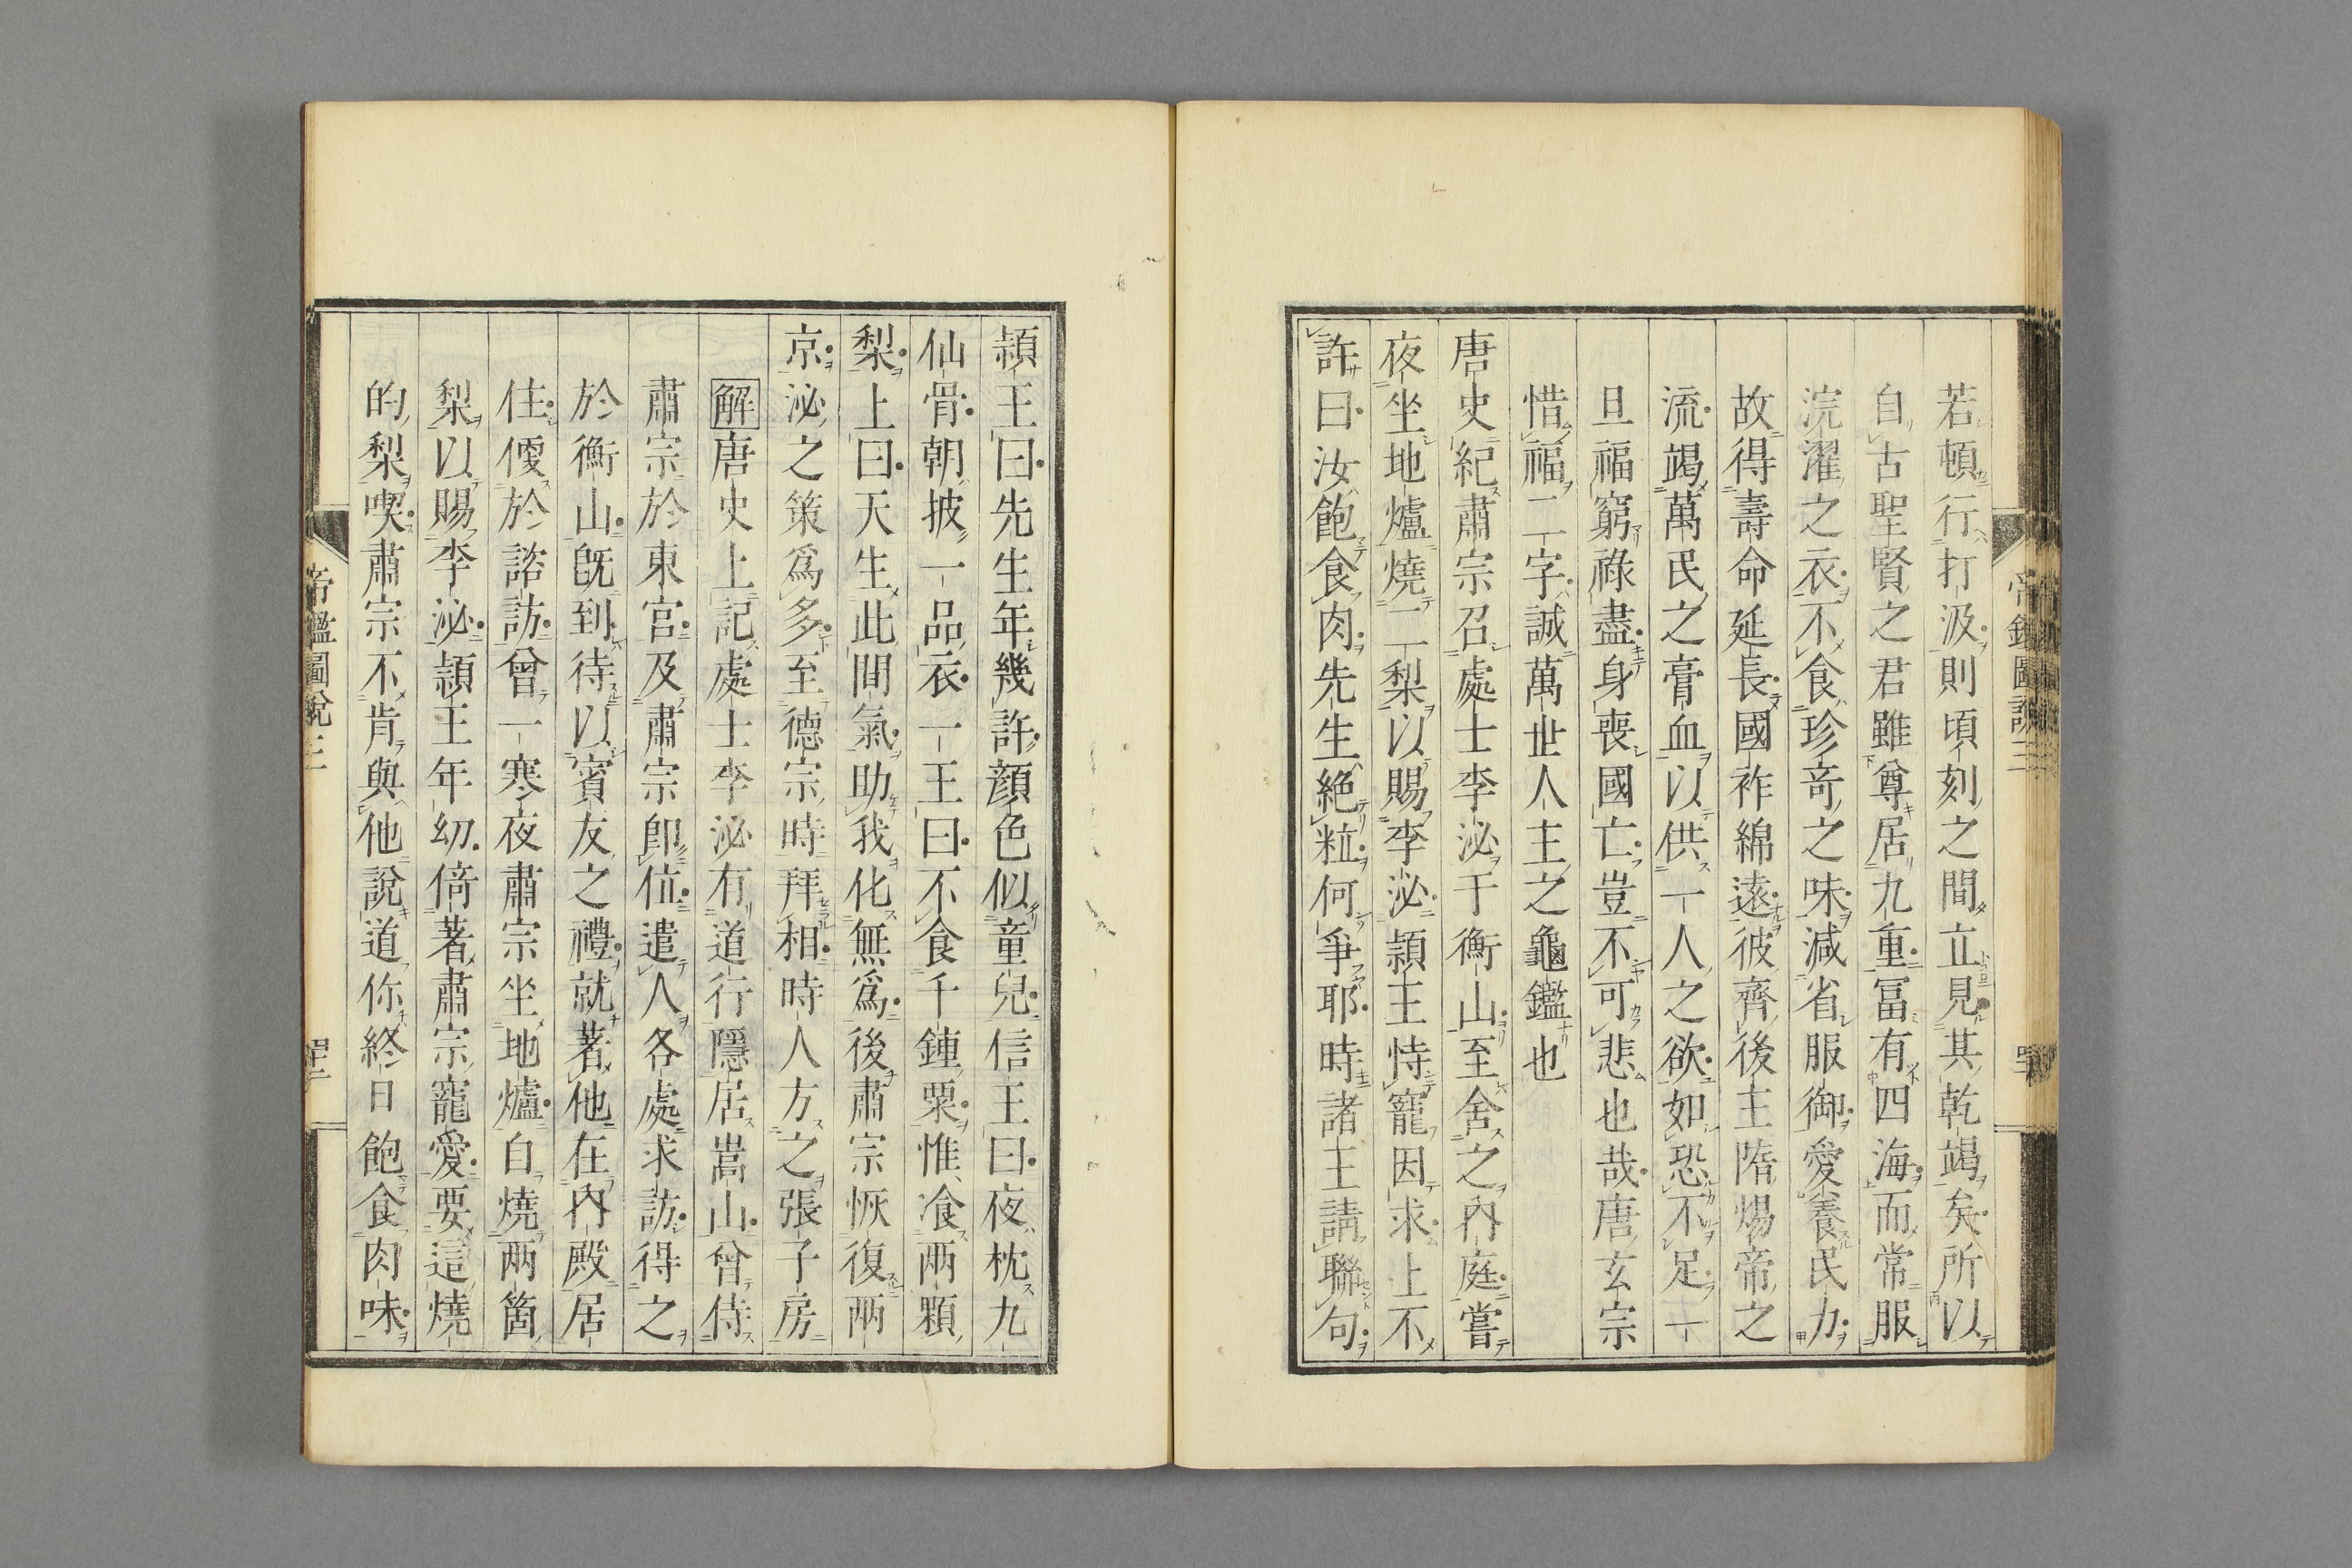 若頓行打汲則頃刻之間立見其乾竭矣所以
自古聖賢之君雖尊居九重冨有四海而常服
浣濯之衣不食珍竒之味減省服御愛養民力
故得壽命延長國祚綿遠彼齊後主隋煬帝之
流竭萬民之膏血以供一人之欲如恐不足一
旦福窮祿盡身喪國亡豈不可悲也哉唐玄宗
惜福二字誠萬世人主之龜鑑也
唐史紀肅宗召處士李泌于衡山至舍之內庭嘗
夜坐地爐燒二梨以賜李泌頴王恃寵因求上不
許曰汝飽食肉先生絶粒何爭耶時諸王請聯句
頴王曰先生年幾許顔色似童兒信王曰夜枕九
仙骨朝披一品衣一王曰不食千鍾粟惟飡兩顆
梨上曰天生此間氣助我化無爲後肅宗恢復兩
京泌之策爲多至德宗時拜相時人方之張子房
解唐史上記處士李泌有道行隱居嵩山曾侍
肅宗於東宮及肅宗卽位遣人各處求訪得之
於衡山旣到待以賓友之禮就著他在內殿居
住便於諮訪曾一寒夜肅宗坐地爐自燒兩箇
梨以賜李泌頴王年幼倚著肅宗寵愛要這燒
的梨喫肅宗不肯與他說道你終日飽食肉味